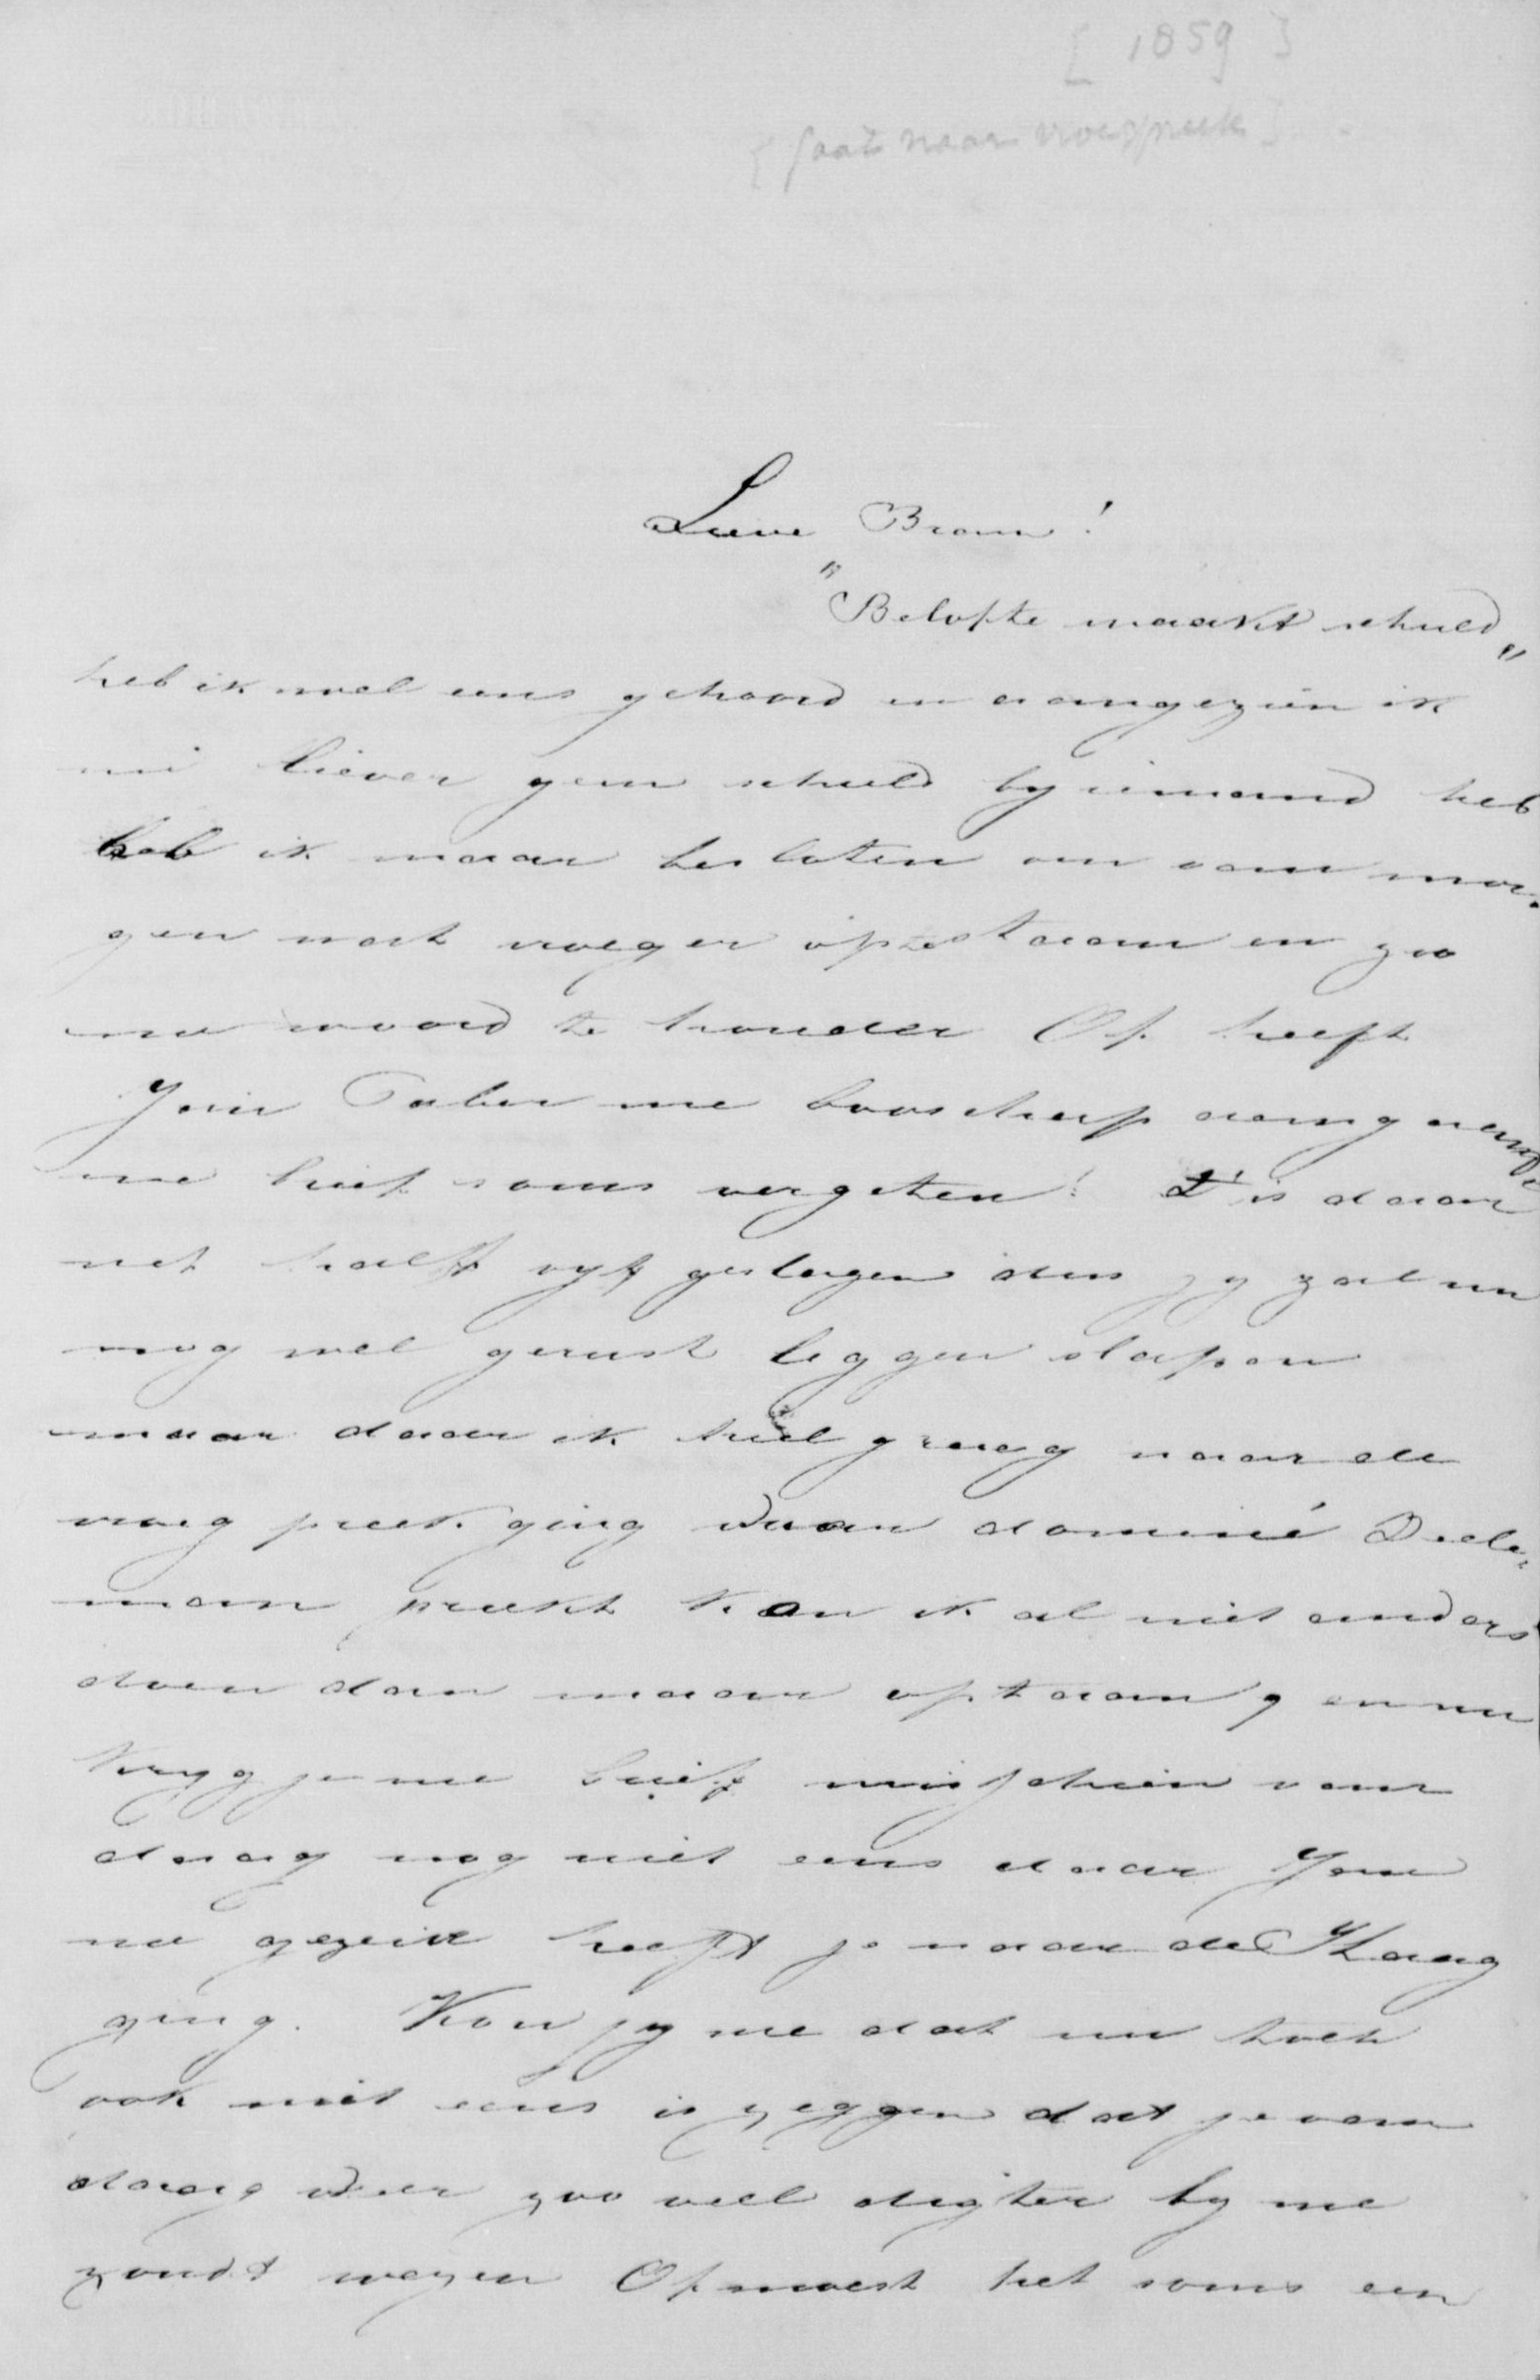 [ 1859 ]
[ gaat naar vroegpreek ]
Lieve Bram!
"Belofte maakt schuld"
heb ik wel eens gehoord en aangezien ik
nu liever geen schuld by iemand heb
heb ik maar besloten om van mor-
gen wat vroeger optestaan en zoo
me woord te houden Of heeft
Jouw me boodschap aangaande
me brief soms vergeten! T is daar
net half vyf geslagen dus jy zal nu
nog wel gerust leggen slapen
maar daar ik heel graag naar de
vroeg preek ging waar dominé Deele-
man preekt kan ik al niet anders
doen dan maar optaan, en nu
kryg je me brief misschien van
daag nog niet eens daar
me gezeid heeft je naar den Haag
ging. Kon jy me dat nu toch
ook niet eens is zeggen dat je van
daag weer zoo veel digter by me
zoudt wezen Of moest het soms een